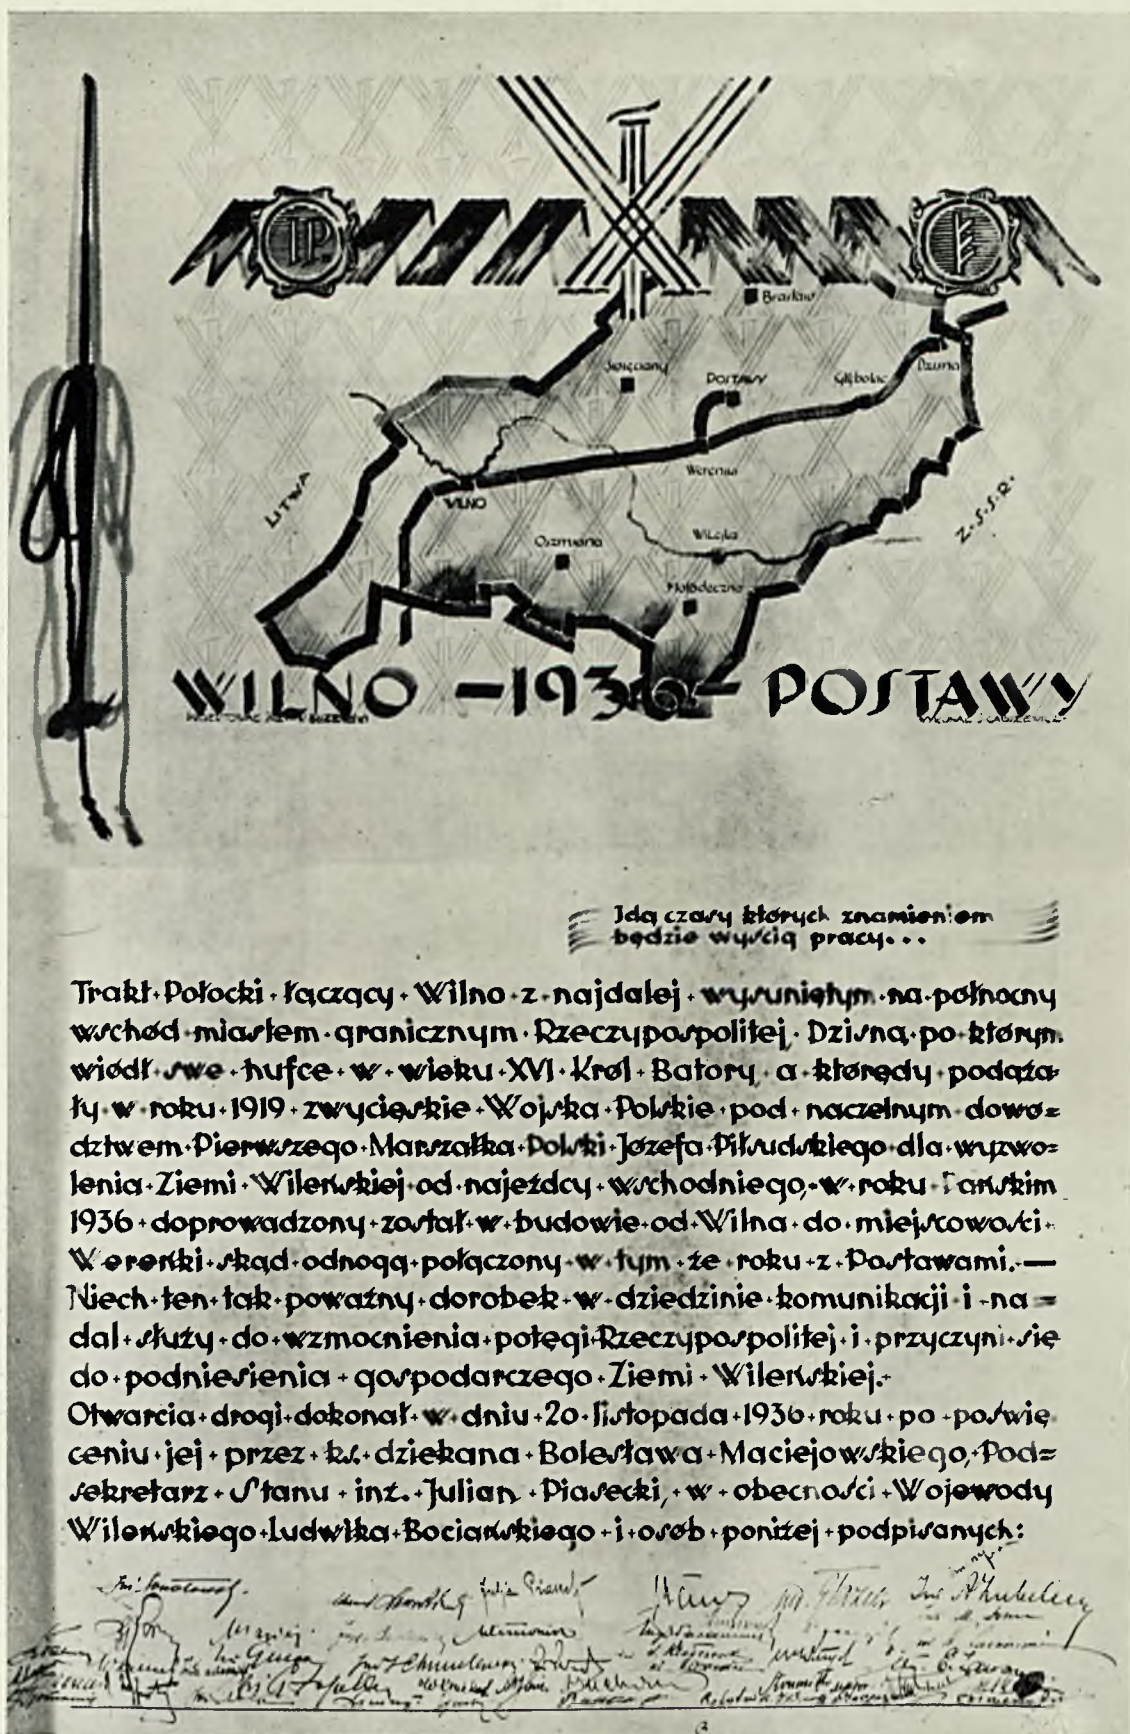 TP.
F
Brasław
Święciany
POSTAWY
Głębokie
Dzisna
LITWA
WILNO
Wereńki
Z.S.S.R.
Oszmiana
Wilejka
Mołodeczno
WILNO – 1936 – POSTAWY
Idą czasy których znamieniem
będzie wyścig pracy...
Trakt Połocki łączący Wilno z najdalej wysuniętym na północny
wschód miastem granicznym Rzeczypospolitej Dzisną po którym
wiódł swe hufce w wieku XVI Król Batory a którędy podąża-
ły w roku 1919 zwycięskie Wojska Polskie pod naczelnym dowó=
dztwem Pierwszego Marszałka Polski Józefa Piłsudskiego dla wyzwo=
lenia Ziemi Wileńskiej od najeźdcy wschodniego, w roku Pańskim
1936 doprowadzony został w budowie od Wilna do miejscowości
Wereńki skąd odnogą połączony w tym że roku z Postawami. —
Niech ten tak poważny dorobek w dziedzinie komunikacji i na =
dal służy do wzmocnienia potęgi Rzeczypospolitej i przyczyni się
do podniesienia gospodarczego Ziemi Wileńskiej.
Otwarcia drogi dokonał w dniu 20 listopada 1936 roku po poświę
ceniu jej przez ks. dziekana Bolesława Maciejowskiego, Pod=
sekretarz Stanu inż. Julian Piasecki, w obecności Wojewody
Wileńskiego Ludwika Bociańskiego i osób poniżej podpisanych: